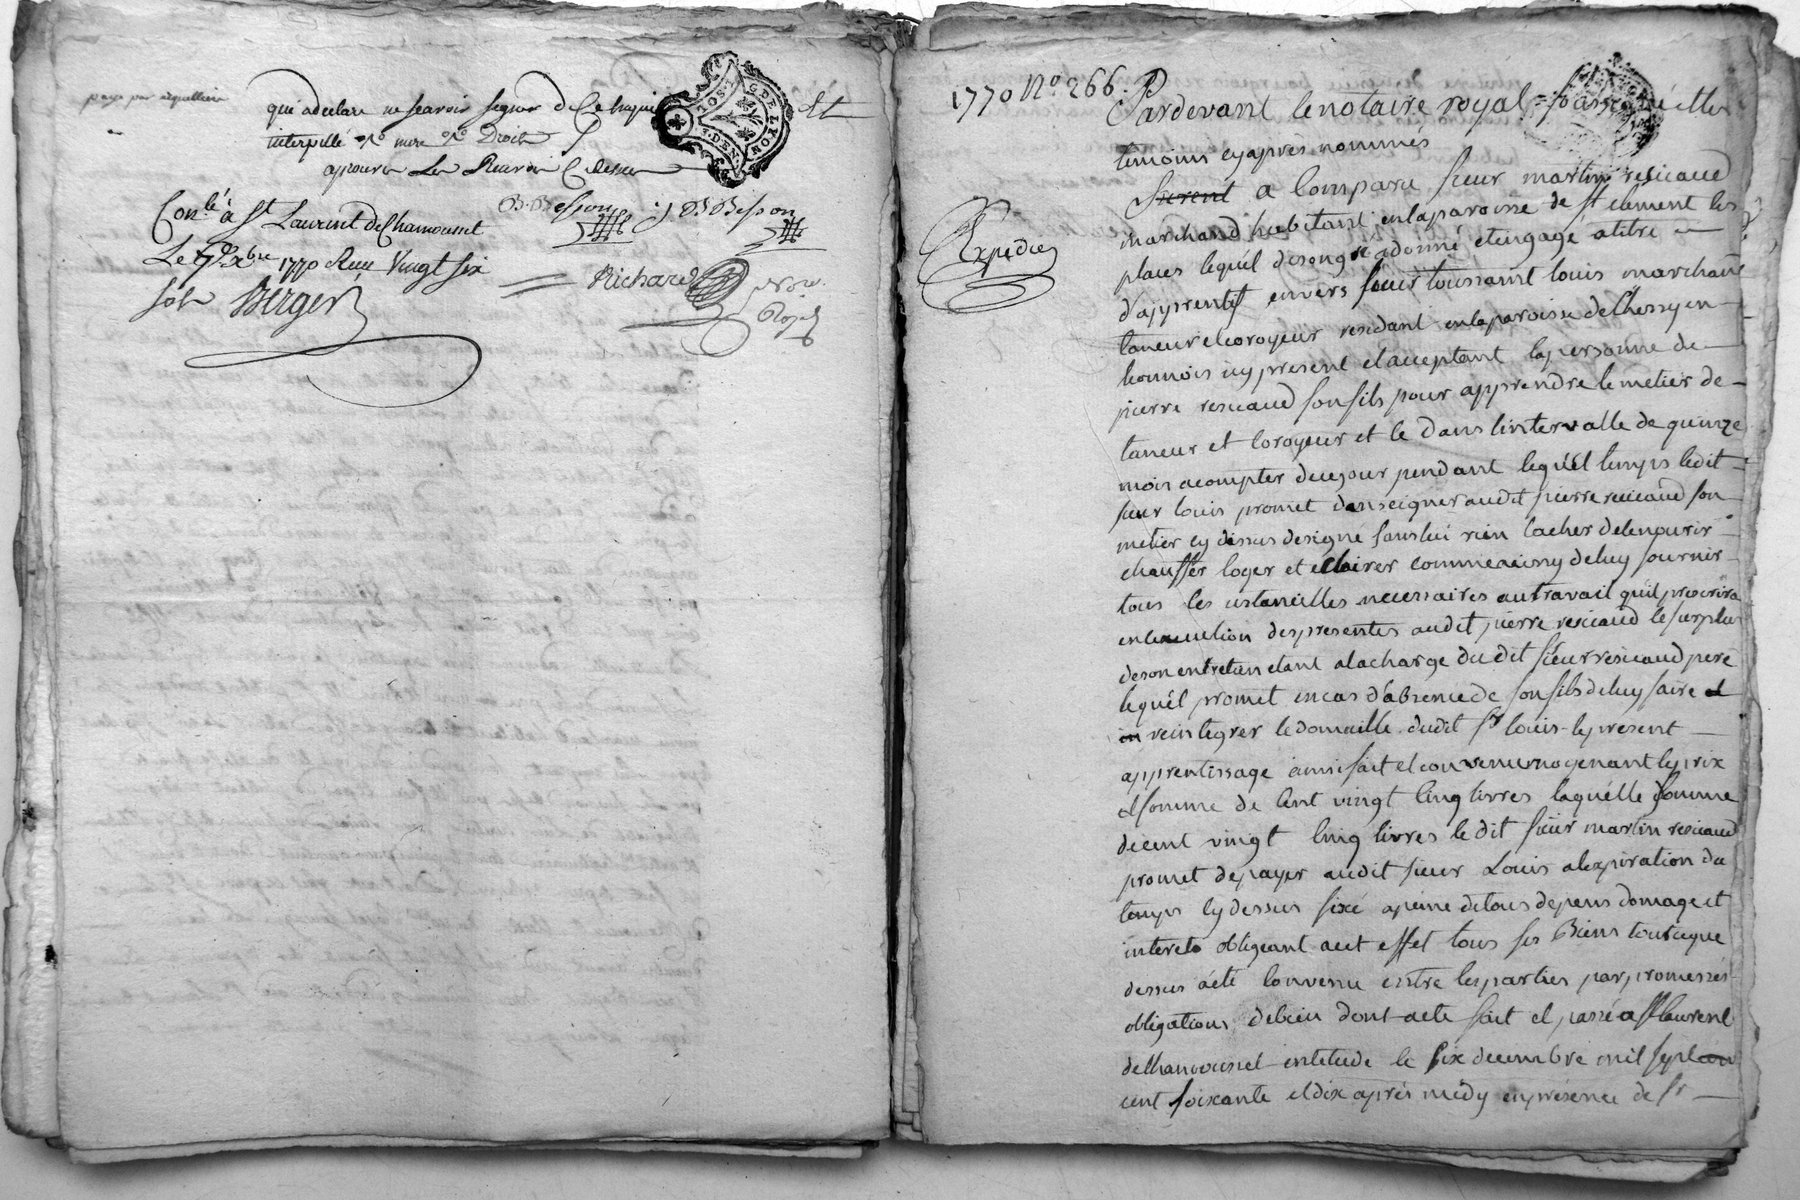 que a declaré ne scavoir signer de ce enquis Et
interpellé
approuvé
Con.lé à St Laurent de Chamousset
Le xbre 1770 Reçu Vingt six
sols Berger
B. Besson
J B Besson
Richard
GDE LYON
1770 No 266.
Expedié
Pardevant le notaire royal soussigné et les
temoins cy apres nommés
Surent a comparu sieur martin resicaud
marchand habitant en la paroisse de st clement les
places lequel de son gré a donné et engagé a titre
d'apprentif envers sieur toussaint louis marchand
taneur et coroyeur residant en la paroisse de Chessy en
lionnois icy present et acceptant la personne de
pierre resicaud son fils pour apprendre le metier de
taneur et coroyeur et ce dans l'intervalle de quinze
mois a compter de ce jour pendant lequel temps ledit
sieur louis promet d'enseigner audit pierre resicaud son
metier cy dessus designé sans lui rien cacher de le nourir
chauffer loger et eclairer comme aussy de luy fournir
tous les ustancilles necessaires au travail qu'il prescrira
en execution des presentes audit pierre resicaud le surplus
de son entretien etant a la charge du dit sieur resicaud pere
lequel promet en cas d'absence de son fils de luy faire et
en reintegrer le domicille dudit sr louis le present
apprentissage ainsi fait et convenu moyenant le prix
et somme de cent vingt cinq livres laquelle somme
de cent vingt cinq livres le dit sieur martin resicaud
promet de payer audit sieur Louis a l'expiration du
temps cy dessus fixé a peine de tous depens domage et
interets obligeant a cet effet tous ses Biens tout ce que
dessus a été convenu entre les parties par promesses
obligations de bien dont acte fait et passé a st laurent
de Chamousset en l'etude le six decembre mil sept cen
cent soixante et dix après midy en présence de sr